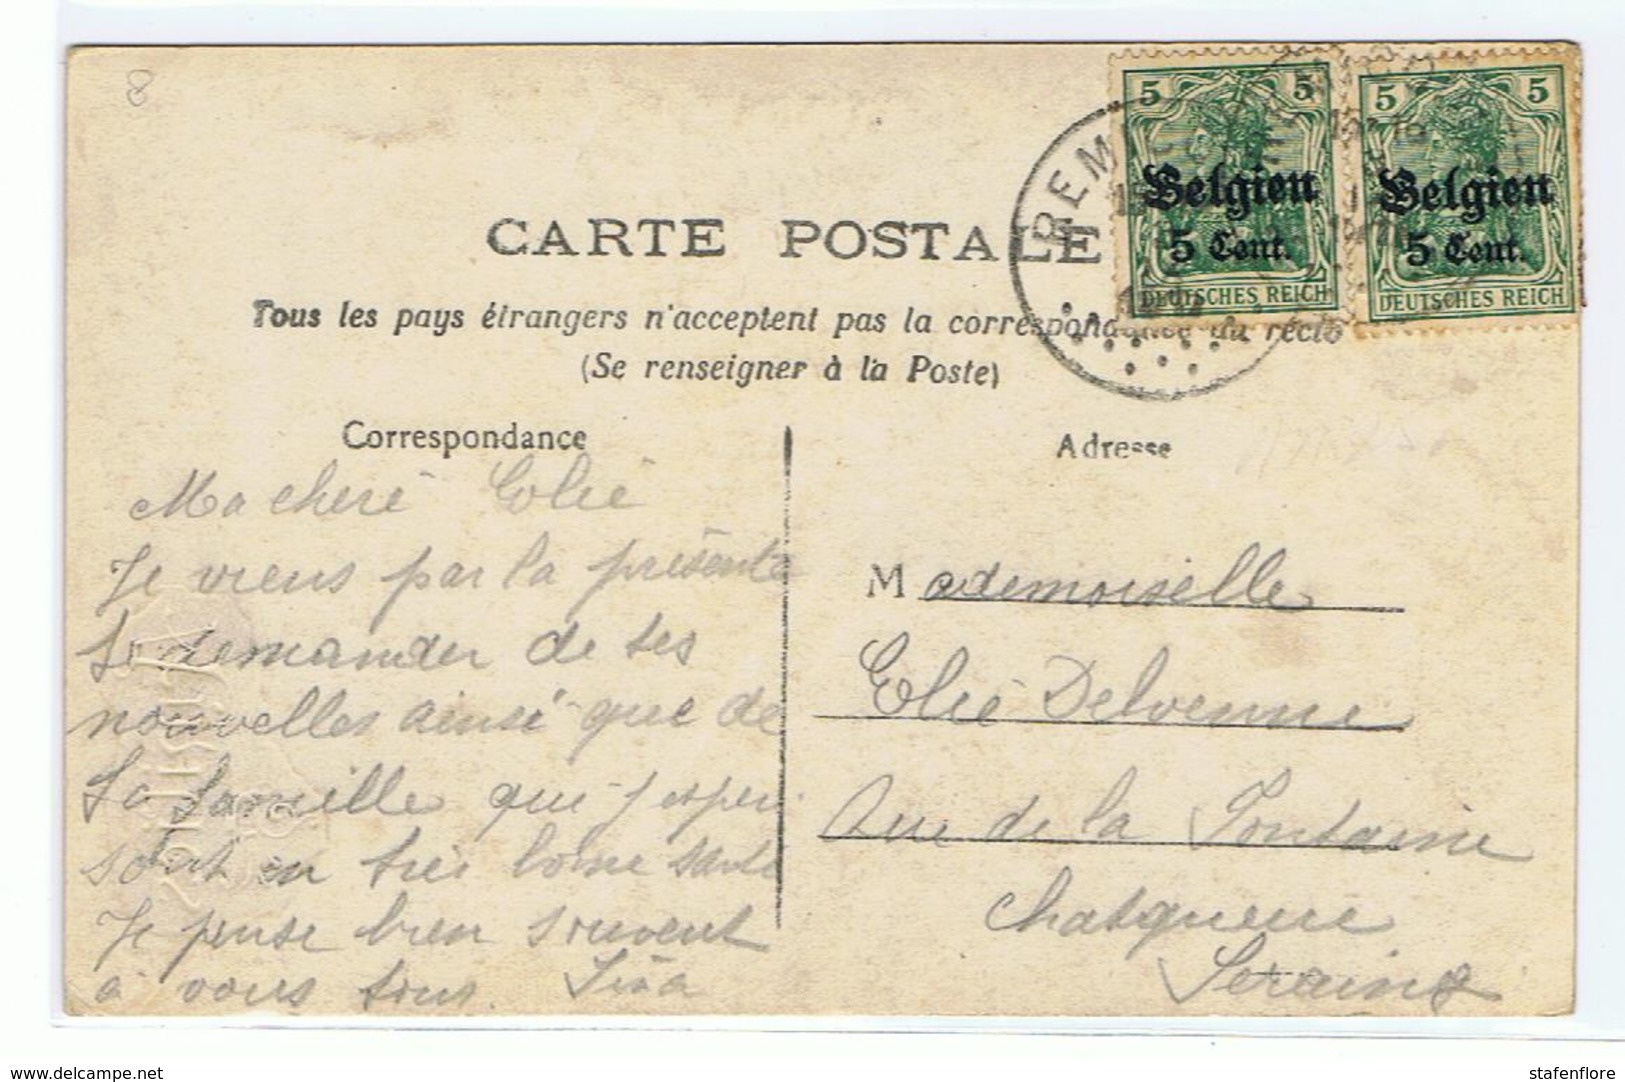 8
5 5
Belgien
5 Cent.
DEUTSCHES REICH
5 5
Belgien
5 Cent.
DEUTSCHES REICH
CARTE POSTALE
Tous les pays étrangers n'acceptent pas la correspondance au recto
(Se renseigner à la Poste)
Correspondance
Ma cheré Eolié
Je viens par la présente
te demander de tes
nouvelles ainsi que de
ta famille qui j'esper
sont en très bonne santé
Je pense bien souvent
à vous tous.
Adresse
Mademoiselle
Eolié Delvenne
Rue de la Fontaine
Chatqueue
Seraing
delcampe.net
stafenflore